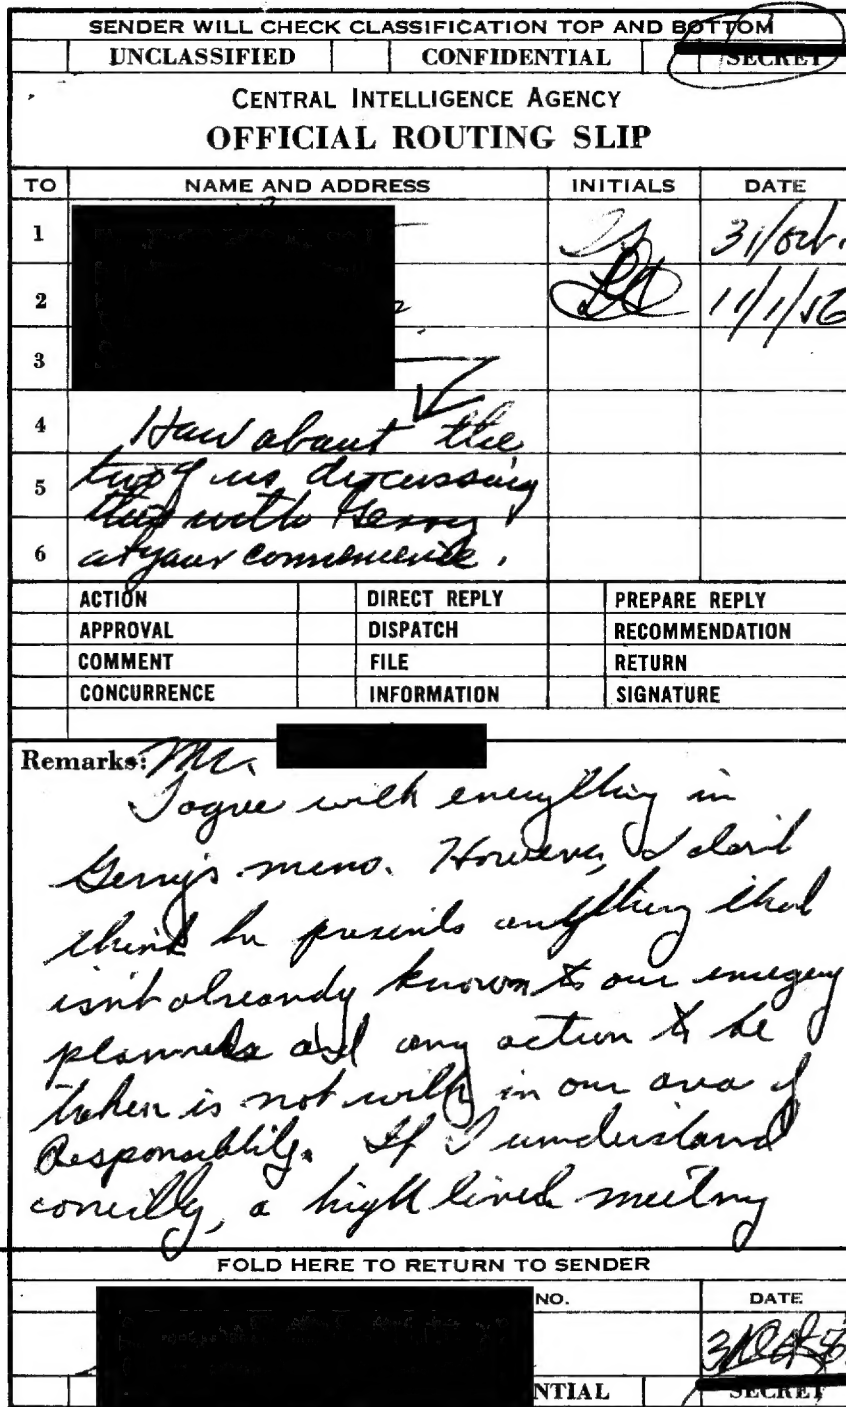 SENDER WILL CHECK CLASSIFICATION TOP AND BOTTOM
UNCLASSIFIED CONFIDENTIAL SECRET
CENTRAL INTELLIGENCE AGENCY
OFFICIAL ROUTING SLIP
TO NAME AND ADDRESS INITIALS DATE
1 31/Oct.
2 11/1/56
3
4 How about the
5 two of us discussing
this with Gerry
6 at your convenience.
ACTION DIRECT REPLY PREPARE REPLY
APPROVAL DISPATCH RECOMMENDATION
COMMENT FILE RETURN
CONCURRENCE INFORMATION SIGNATURE
Remarks: Mr.
I agree with everything in
Gerry's memo. However, I don't
think he presents anything that
isn't already known to our emergency
planners and any action to be
taken is not within our area of
Responsibility. If I understand
correctly, a high level meeting
FOLD HERE TO RETURN TO SENDER
NO. DATE
NTIAL SECRET